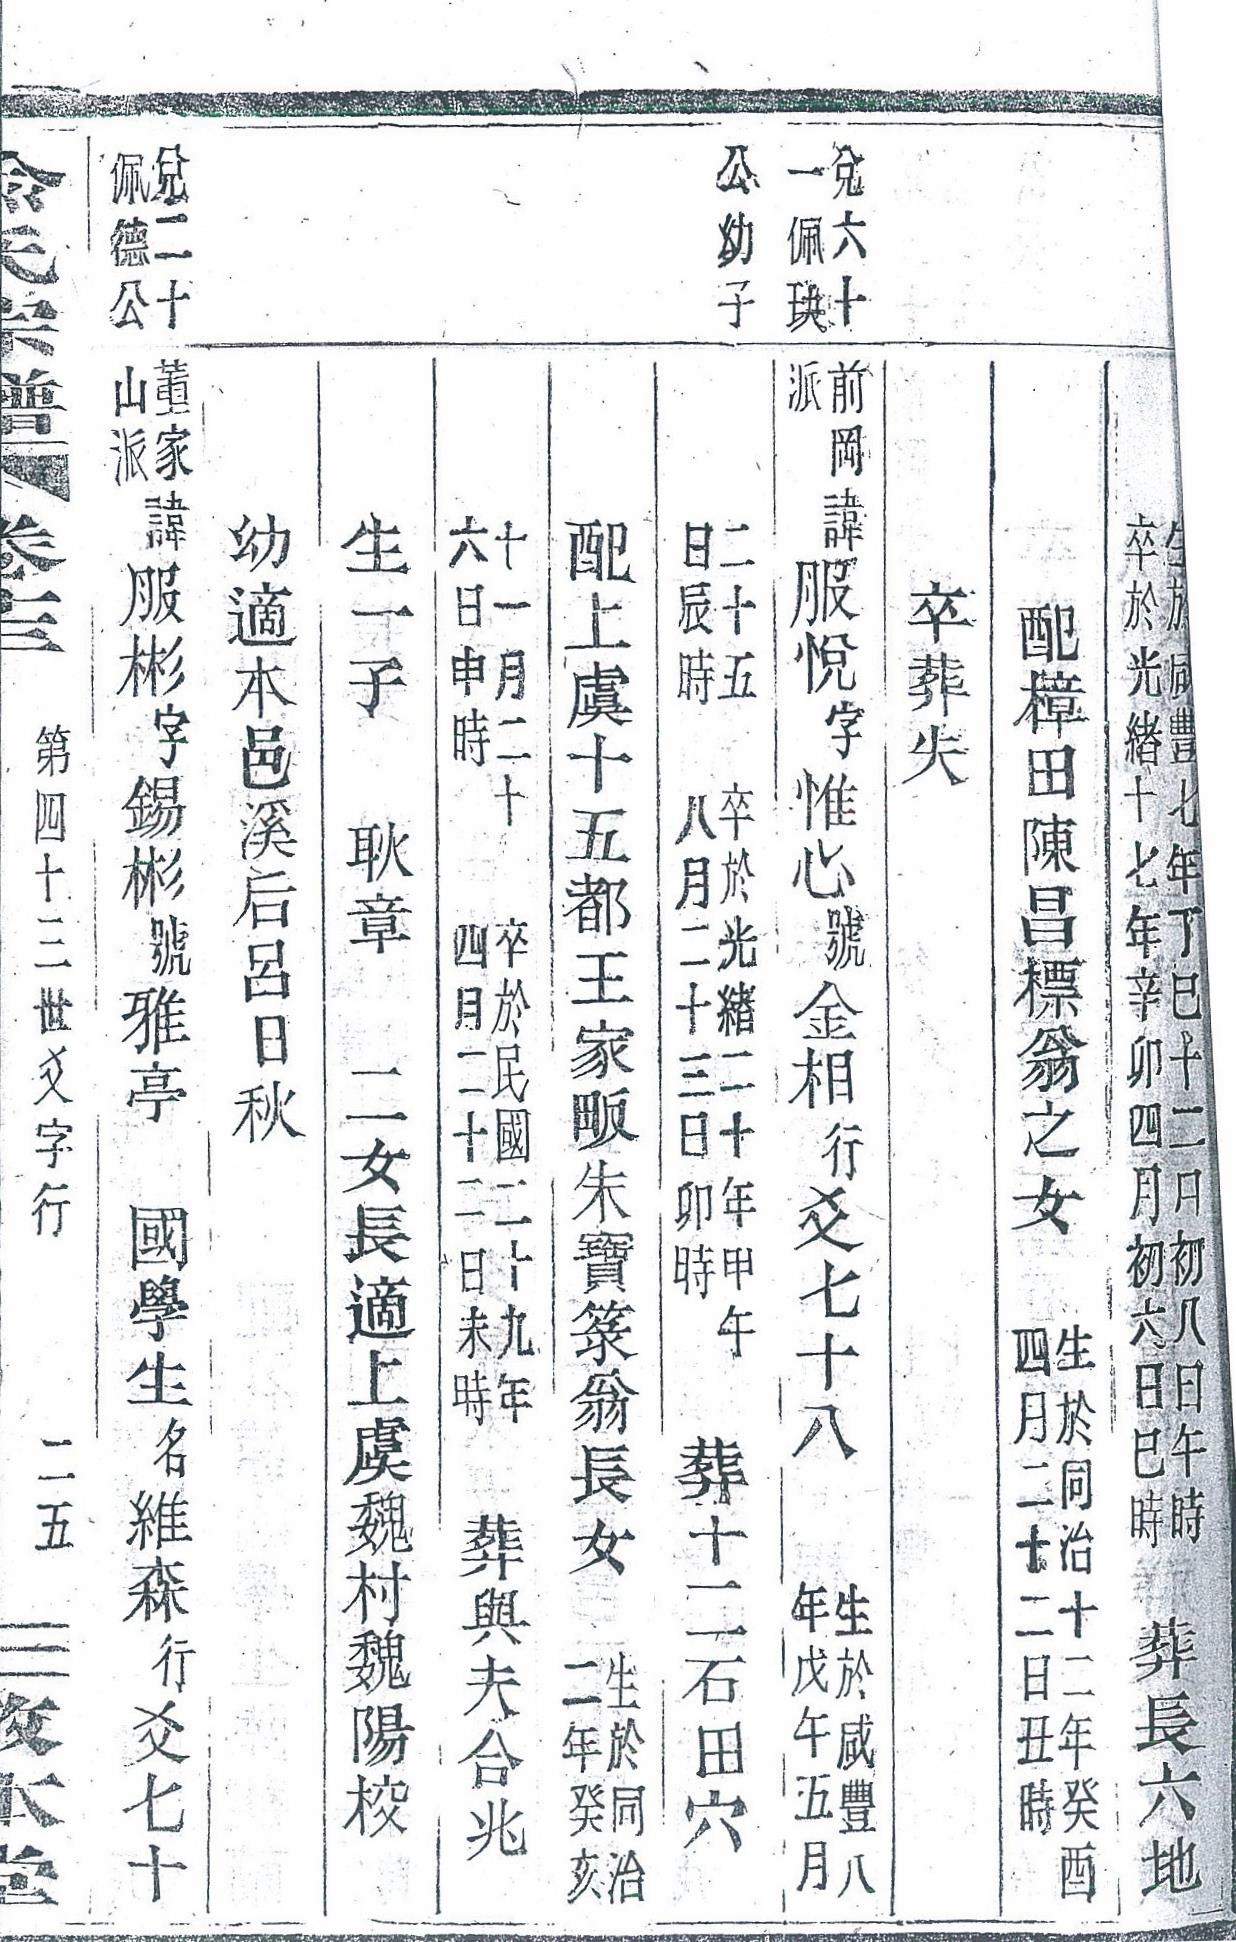 生於咸豐七年丁巳十二月初八日午時
卒於光緒十七年辛卯四月初六日巳時
葬長六地
配樟田陳昌標翁之女
生於同治十二年癸酉
四月二十二日丑時
卒葬失
兌六十
一佩玦
公幼子
前岡
派
諱服悅字惟心號金相行爻七十八
生於咸豐八
年戊午五月
二十五
日辰時
卒於光緒二十年甲午
八月二十三日卯時
葬十二石田穴
配上虞十五都王家畈朱寶箓翁長女
生於同治
二年癸亥
十一月二十
六日申時
卒於民國二十九年
四月二十二日未時
葬與夫合兆
生一子 耿章 二女長適上虞魏村魏陽校
幼適本邑溪后呂日秋
兌二十
佩德公
董家
山派
諱服彬字錫彬號雅亭 國學生名維森行爻七十
氏宗譜 卷三 第四十三世爻字行 二五 敦本堂